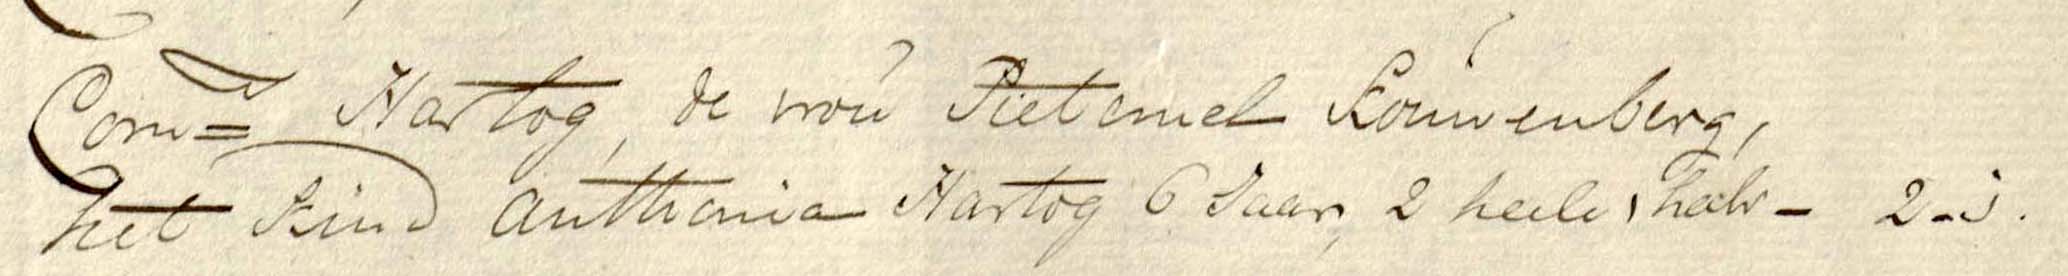 Corn.s Hartog, de vroú Pieternel Koúwenberg,
het kind Anthonia Hartog 6 Jaar, 2 heele 1 halv - 2-1.